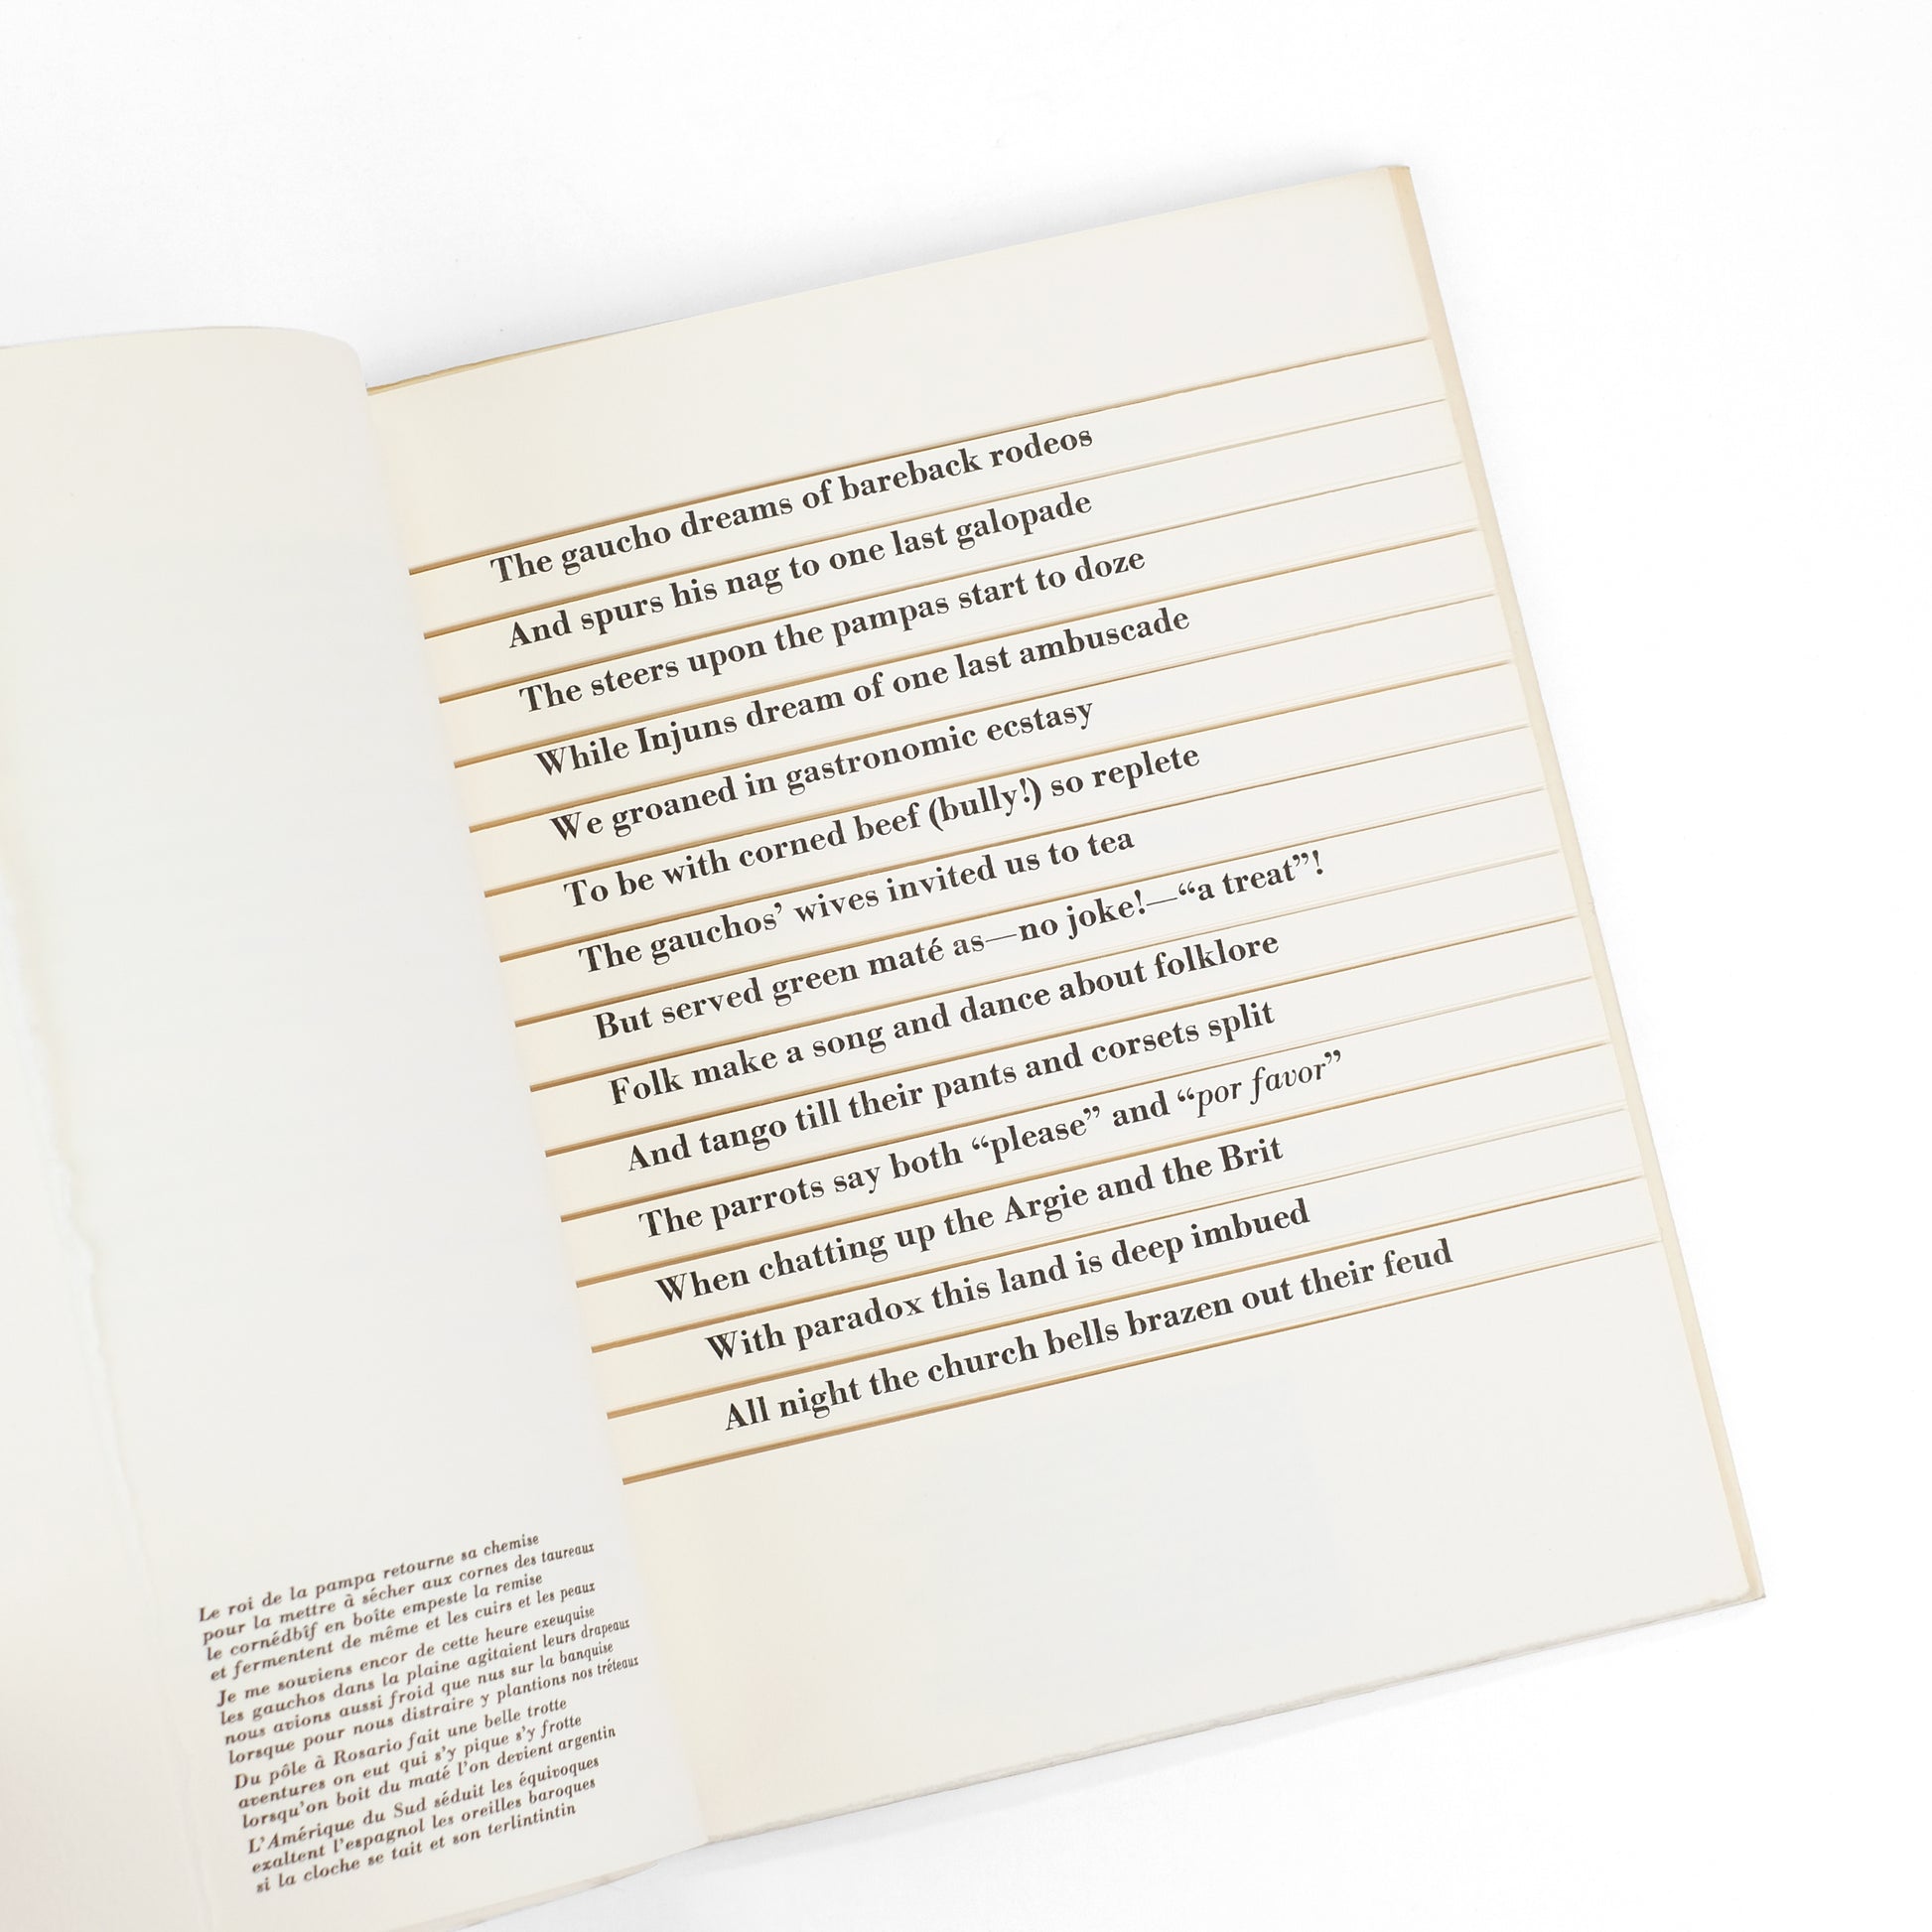 Le roi de la pampa retourne sa chemise
pour la mettre à sécher aux cornes des taureaux
le cornédbîf en boîte empeste la remise
et fermentent de même et les cuirs et les peaux
Je me souviens encor de cette heure exeuquise
les gauchos dans la plaine agitaient leurs drapeaux
nous avions aussi froid que nus sur la banquise
lorsque pour nous distraire y plantions nos tréteaux
Du pôle à Rosario fait une belle trotte
aventures on eut qui s'y pique s'y frotte
lorsqu'on boit du maté l'on devient argentin
L'Amérique du Sud séduit les équivoques
exaltent l'espagnol les oreilles baroques
si la cloche se tait et son terlintintin
The gaucho dreams of bareback rodeos
And spurs his nag to one last galopade
The steers upon the pampas start to doze
While Injuns dream of one last ambuscade
We groaned in gastronomic ecstasy
To be with corned beef (bully!) so replete
The gauchos’ wives invited us to tea
But served green maté as—no joke!—“a treat”!
Folk make a song and dance about folklore
And tango till their pants and corsets split
The parrots say both “please” and “por favor”
When chatting up the Argie and the Brit
With paradox this land is deep imbued
All night the church bells brazen out their feud